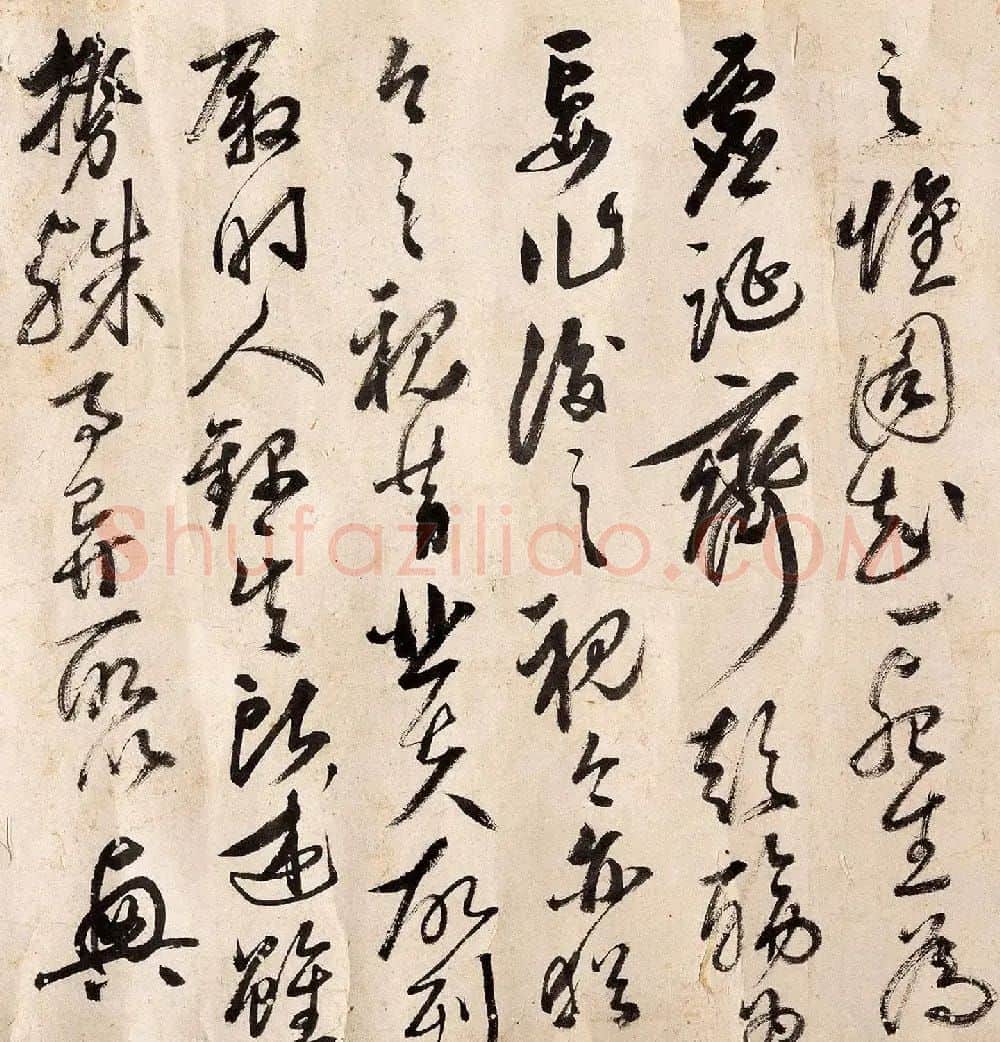 之懷固知一死生為
虛誕齊彭殤為
妄作後之視今亦猶
今之視昔悲夫故列
時人錄其所述雖
殊事異所以興
Shufaziliao.COM